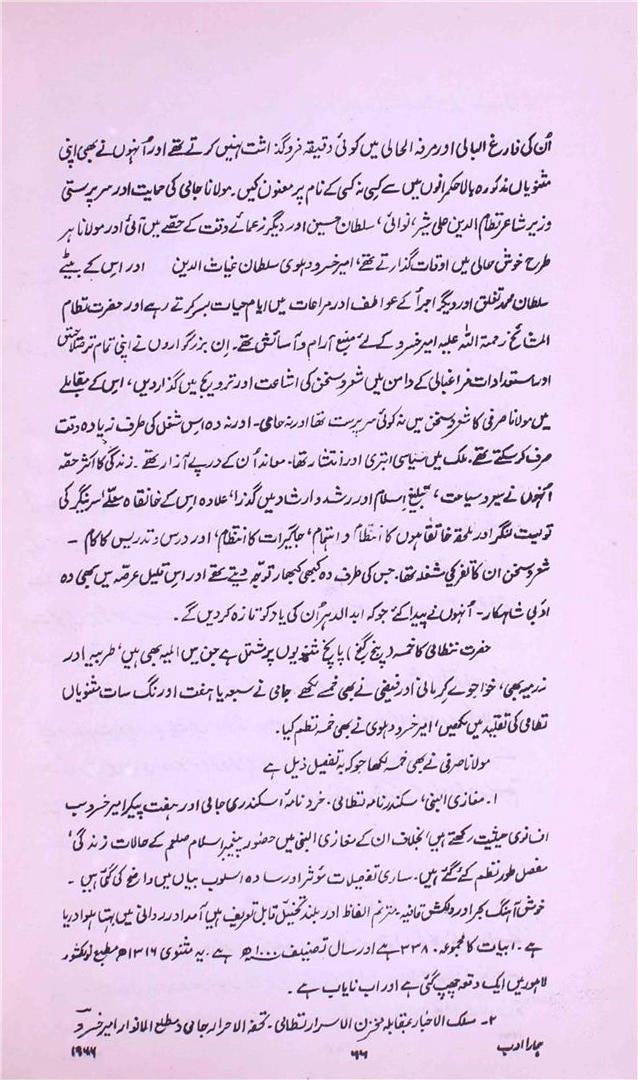 اُن کی فارغ البالی اور مرفہ الحالی میں کوئی دقیقہ فروگذاشت نہیں کرتے تھے اور اُنہوں نے بھی اپنی
مثنویاں مذکورہ بالا حکمرانوں میں سے کسی نہ کسی کے نام پر معنون کیں۔ مولانا جامی کی حمایت اور سرپرستی
وزیر شاعر نظام الدین علی شیر، نوائی، سلطان حسین اور دیگر زعمائے وقت کے حصے میں آئی اور مولانا ہر
طرح خوش حالی میں اوقات گذارتے تھے، امیر خسرو دہلوی سلطان غیاث الدین اور اس کے بیٹے
سلطان محمد تغلق اور دیگر اجرأ کے عواطف اور مراعات میں ایام حیات بسر کرتے رہے اور حضرت نظام
المشائخ رحمۃ اللہ علیہ امیر خسرو کے لئے منبع آرام و آسائش تھے۔ اِن بزرگواروں نے اپنی تمام تر صلاحتیں
اور استعدادات فراغبالی کے دامن میں شعر و سخن کی اشاعت اور ترویج میں گذار دیں، اس کے مقابلے
میں مولانا صرفی کا شعر و سخن میں نہ کوئی سرپرست تھا اور نہ حامی۔ اور نہ وہ اِس شغل کی طرف زیادہ وقت
صرف کر سکتے تھے۔ ملک میں سیاسی ابتری اور انتشار تھا۔ معاند اُن کے درپے آزار تھے۔ زندگی کا اکثر حصہ
اُنہوں نے سیر و سیاحت، تبلیغ اسلام اور رشد و ارشاد میں گذرا، علاوہ اس کے خانقاہ معلّے، سرینگر کی
تولیت لنگر اور ملحقہ خانقاہوں کا انتظام و اہتمام، جاگیرات کا انتظام، اور درس و تدریس کا کام ۔
شعر و سخن ان کا تفریحی مشغلہ تھا۔ جس کی طرف وہ کبھی کبھار توجہ دیتے تھے اور اس قلیل عرصہ میں بھی وہ
ادبی شاہکار۔ اُنہوں نے پیدا کئے جو کہ ابد الدہر اُن کی یاد کو تازہ کر دیں گے ۔
حضرت نظامی کا خمسہ (پنج گنج) پانچ مثنویوں پر مشتمل ہے جن میں المیہ بھی ہیں، طربیہ اور
رزمیہ بھی، خواجوے کرمانی اور فیضی نے بھی خمسے لکھے۔ جامی نے سبعہ یا ہفت اورنگ سات مثنویاں
نظامی کی تقلید میں لکھیں، امیر خسرو دہلوی نے بھی خمسہ نظم کیا۔
مولانا صرفی نے بھی خمسہ لکھا جو کہ بہ تفصیل ذیل ہے
۱۔ مغازی النبی، سکندر نامہ نظامی۔ خردنامۂ اسکندری جامی اور ہفت پیکر امیر خسرو سب
افسانوی حیثیت رکھتے ہیں، بخلاف ان کے مغازی النبی میں حضور پیغمبر اسلام صلعم کے حالات زندگی،
مفصل طور نظم کئے گئے ہیں۔ ساری تفصیلات موثر اور سادہ اسلوب بیاں میں واضح کی گئی ہیں ۔
خوش آہنگ بحر اور دلکش قافیہ۔ مترنم الفاظ اور بلند تخیّل قابل تعریف ہیں آمد اور روانی میں بہتا ہوا دریا
ہے۔ ابیات کا مجموعہ ۳۳۸۰ ہے اور سال تصنیف ۱۰۰۰ھ ہے۔ یہ مثنوی ۱۳۱۶ھ مطبع نولکشور
لاہور میں ایک دفعہ چھپ گئی ہے اور اب نایاب ہے ۔
۲۔ مسلک الاخیار بمقابلہ مخزن الاسرار نظامی۔ تحفۃ الاحرار جامی و مطلع الانوار امیر خسرو
ہمارا ادب ۶۶ ۱۹۶۶